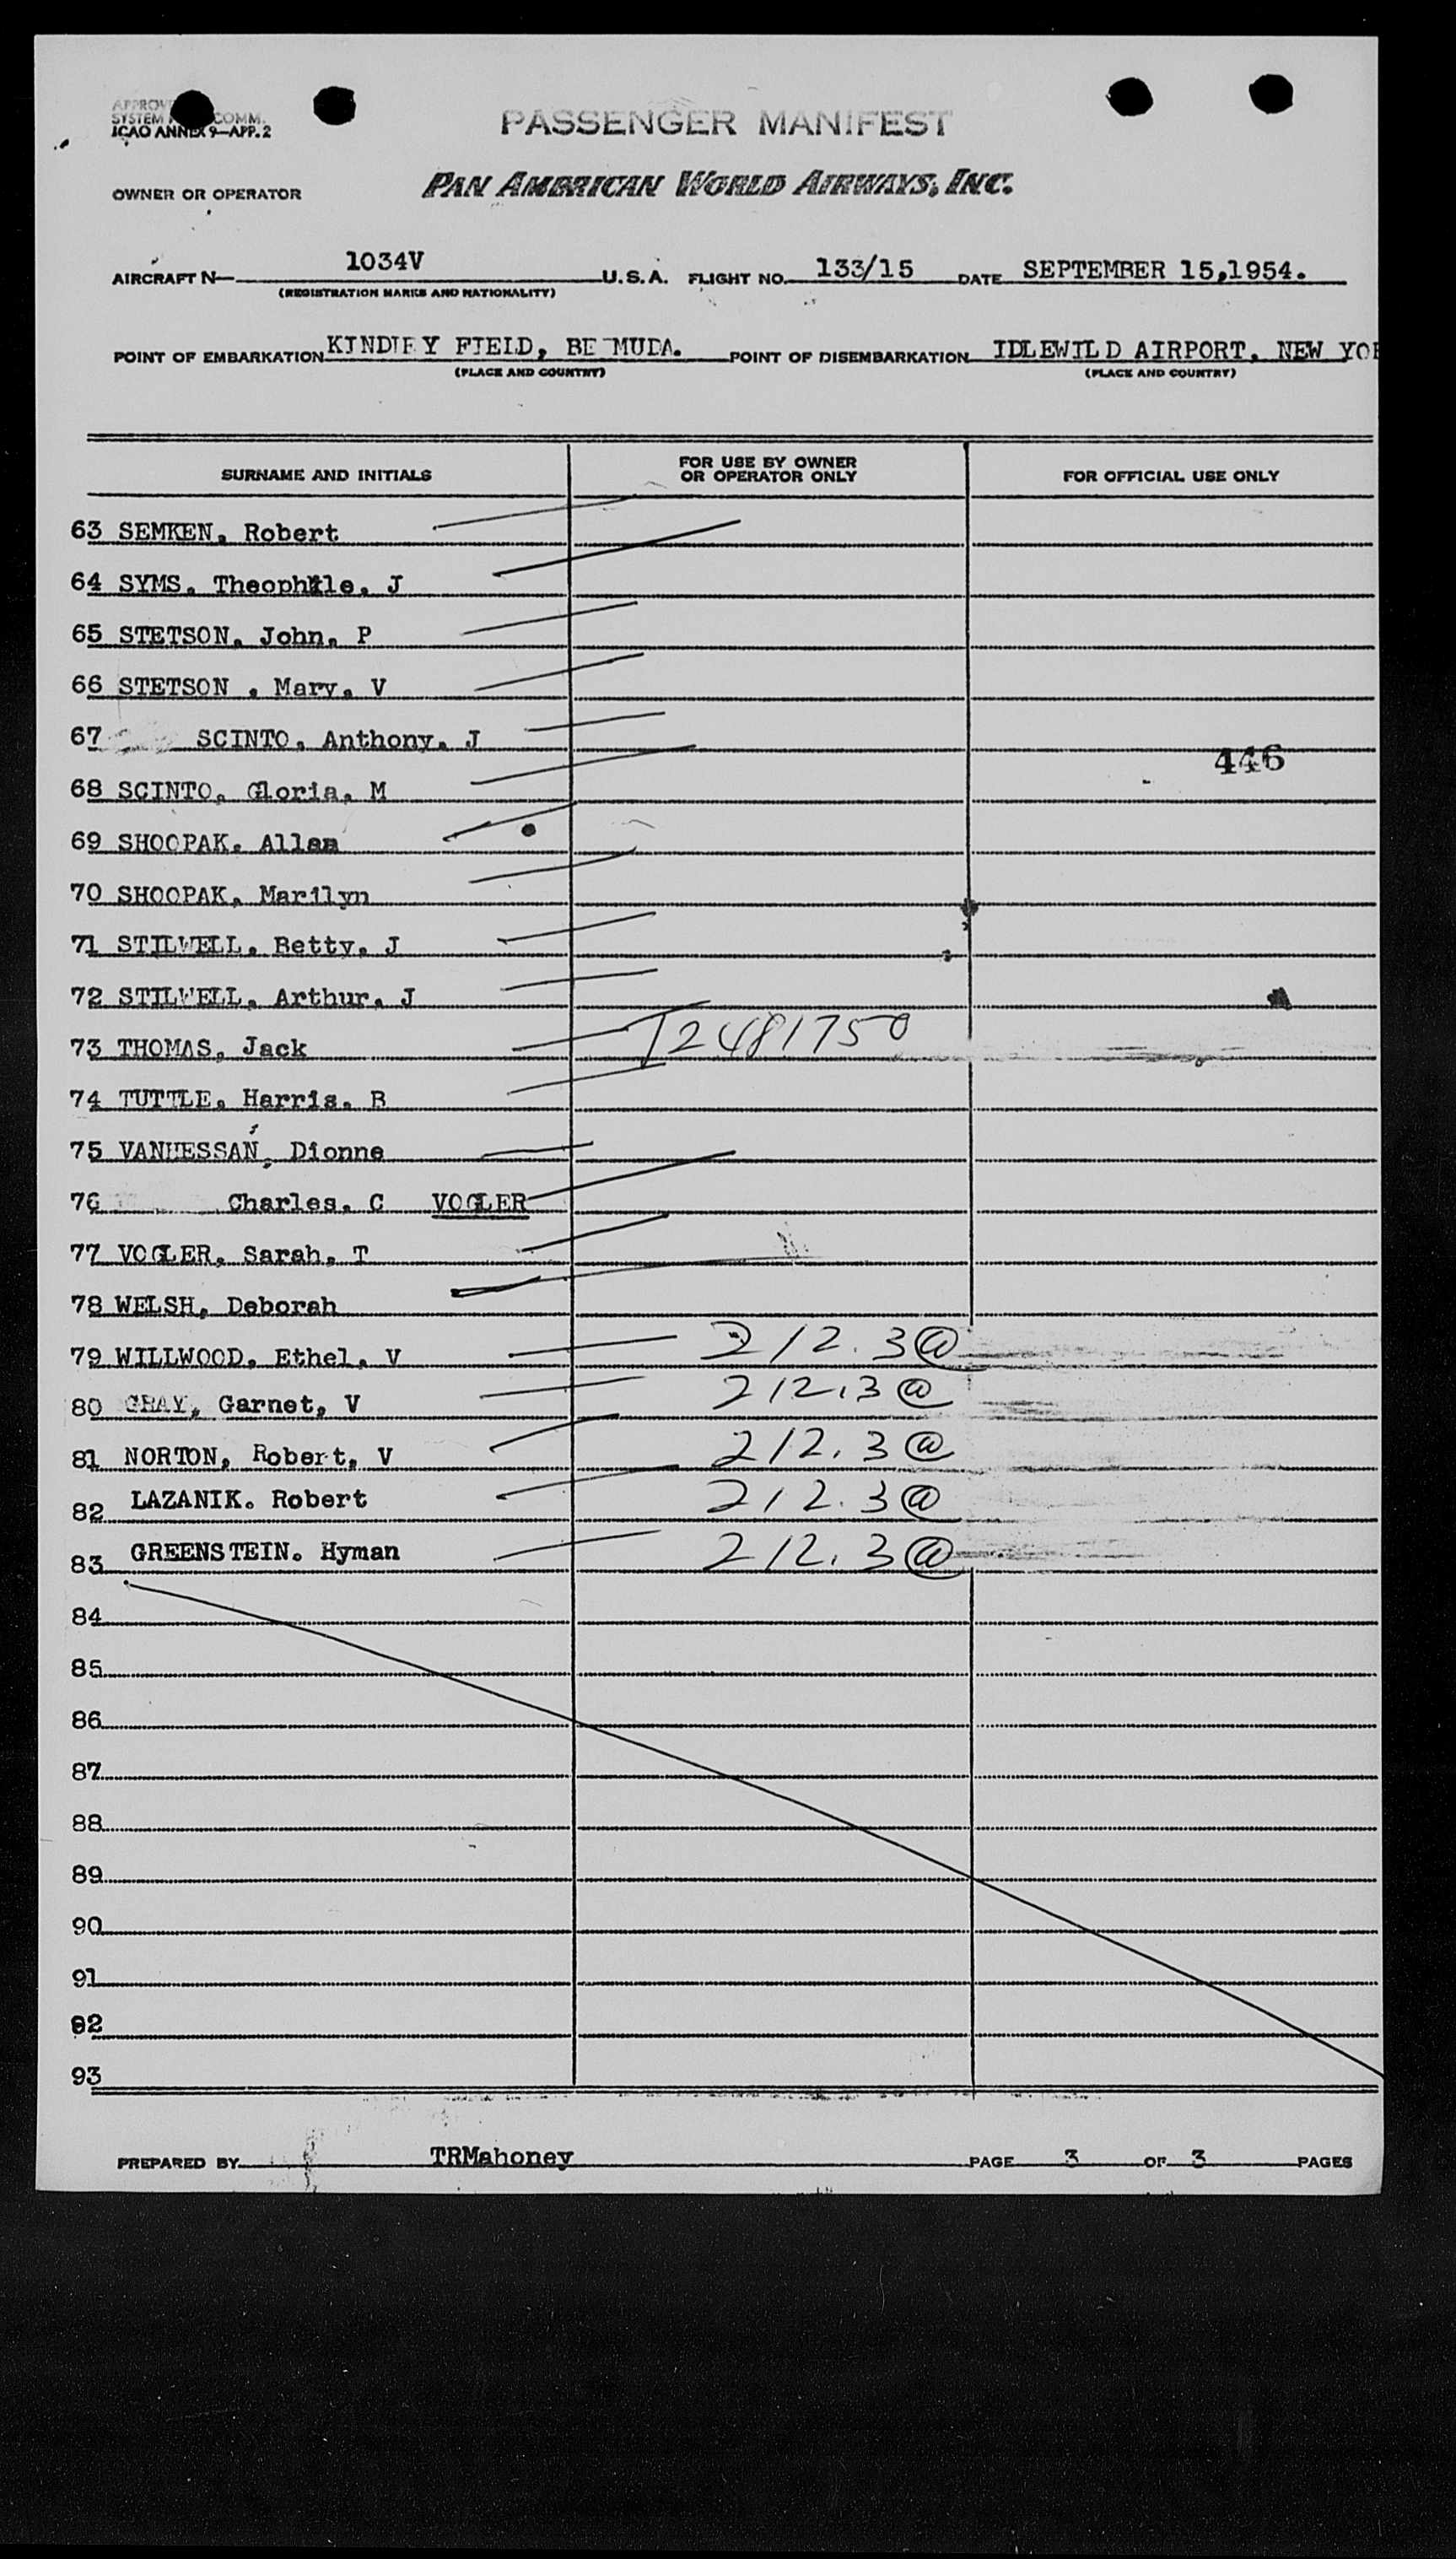 SYSTEM COMM.
ICAO ANNEX 9—APP. 2
PASSENGER MANIFEST
OWNER OR OPERATOR PAN AMERICAN WORLD AIRWAYS, INC.
AIRCRAFT N— 1034V U.S.A. FLIGHT NO. 133/15 DATE SEPTEMBER 15,1954.
(REGISTRATION MARKS AND NATIONALITY)
POINT OF EMBARKATION KINDLEY FIELD, BERMUDA. POINT OF DISEMBARKATION IDLEWILD AIRPORT, NEW YO
(PLACE AND COUNTRY) (PLACE AND COUNTRY)
SURNAME AND INITIALS FOR USE BY OWNER OR OPERATOR ONLY FOR OFFICIAL USE ONLY
63 SEMKEN, Robert
64 SYMS, Theophile, J
65 STETSON, John, P
66 STETSON , Mary, V
67 SCINTO, Anthony, J
446
68 SCINTO, Gloria, M
69 SHOOPAK, Allan
70 SHOOPAK, Marilyn
71 STILWELL, Betty, J
72 STILWELL, Arthur, J
73 THOMAS, Jack T2481750
74 TUTTLE, Harris, B
75 VANHESSAN, Dionne
76 Charles, C VOGLER
77 VOGLER, Sarah, T
78 WELSH, Deborah
79 WILLWOOD, Ethel, V 212.3@
80 GRAY, Garnet, V 212.3@
81 NORTON, Robert, V 212.3@
82 LAZANIK. Robert 212.3@
83 GREENSTEIN. Hyman 212.3@
84
85
86
87
88
89
90
91
92
93
PREPARED BY TRMahoney PAGE 3 OF 3 PAGES